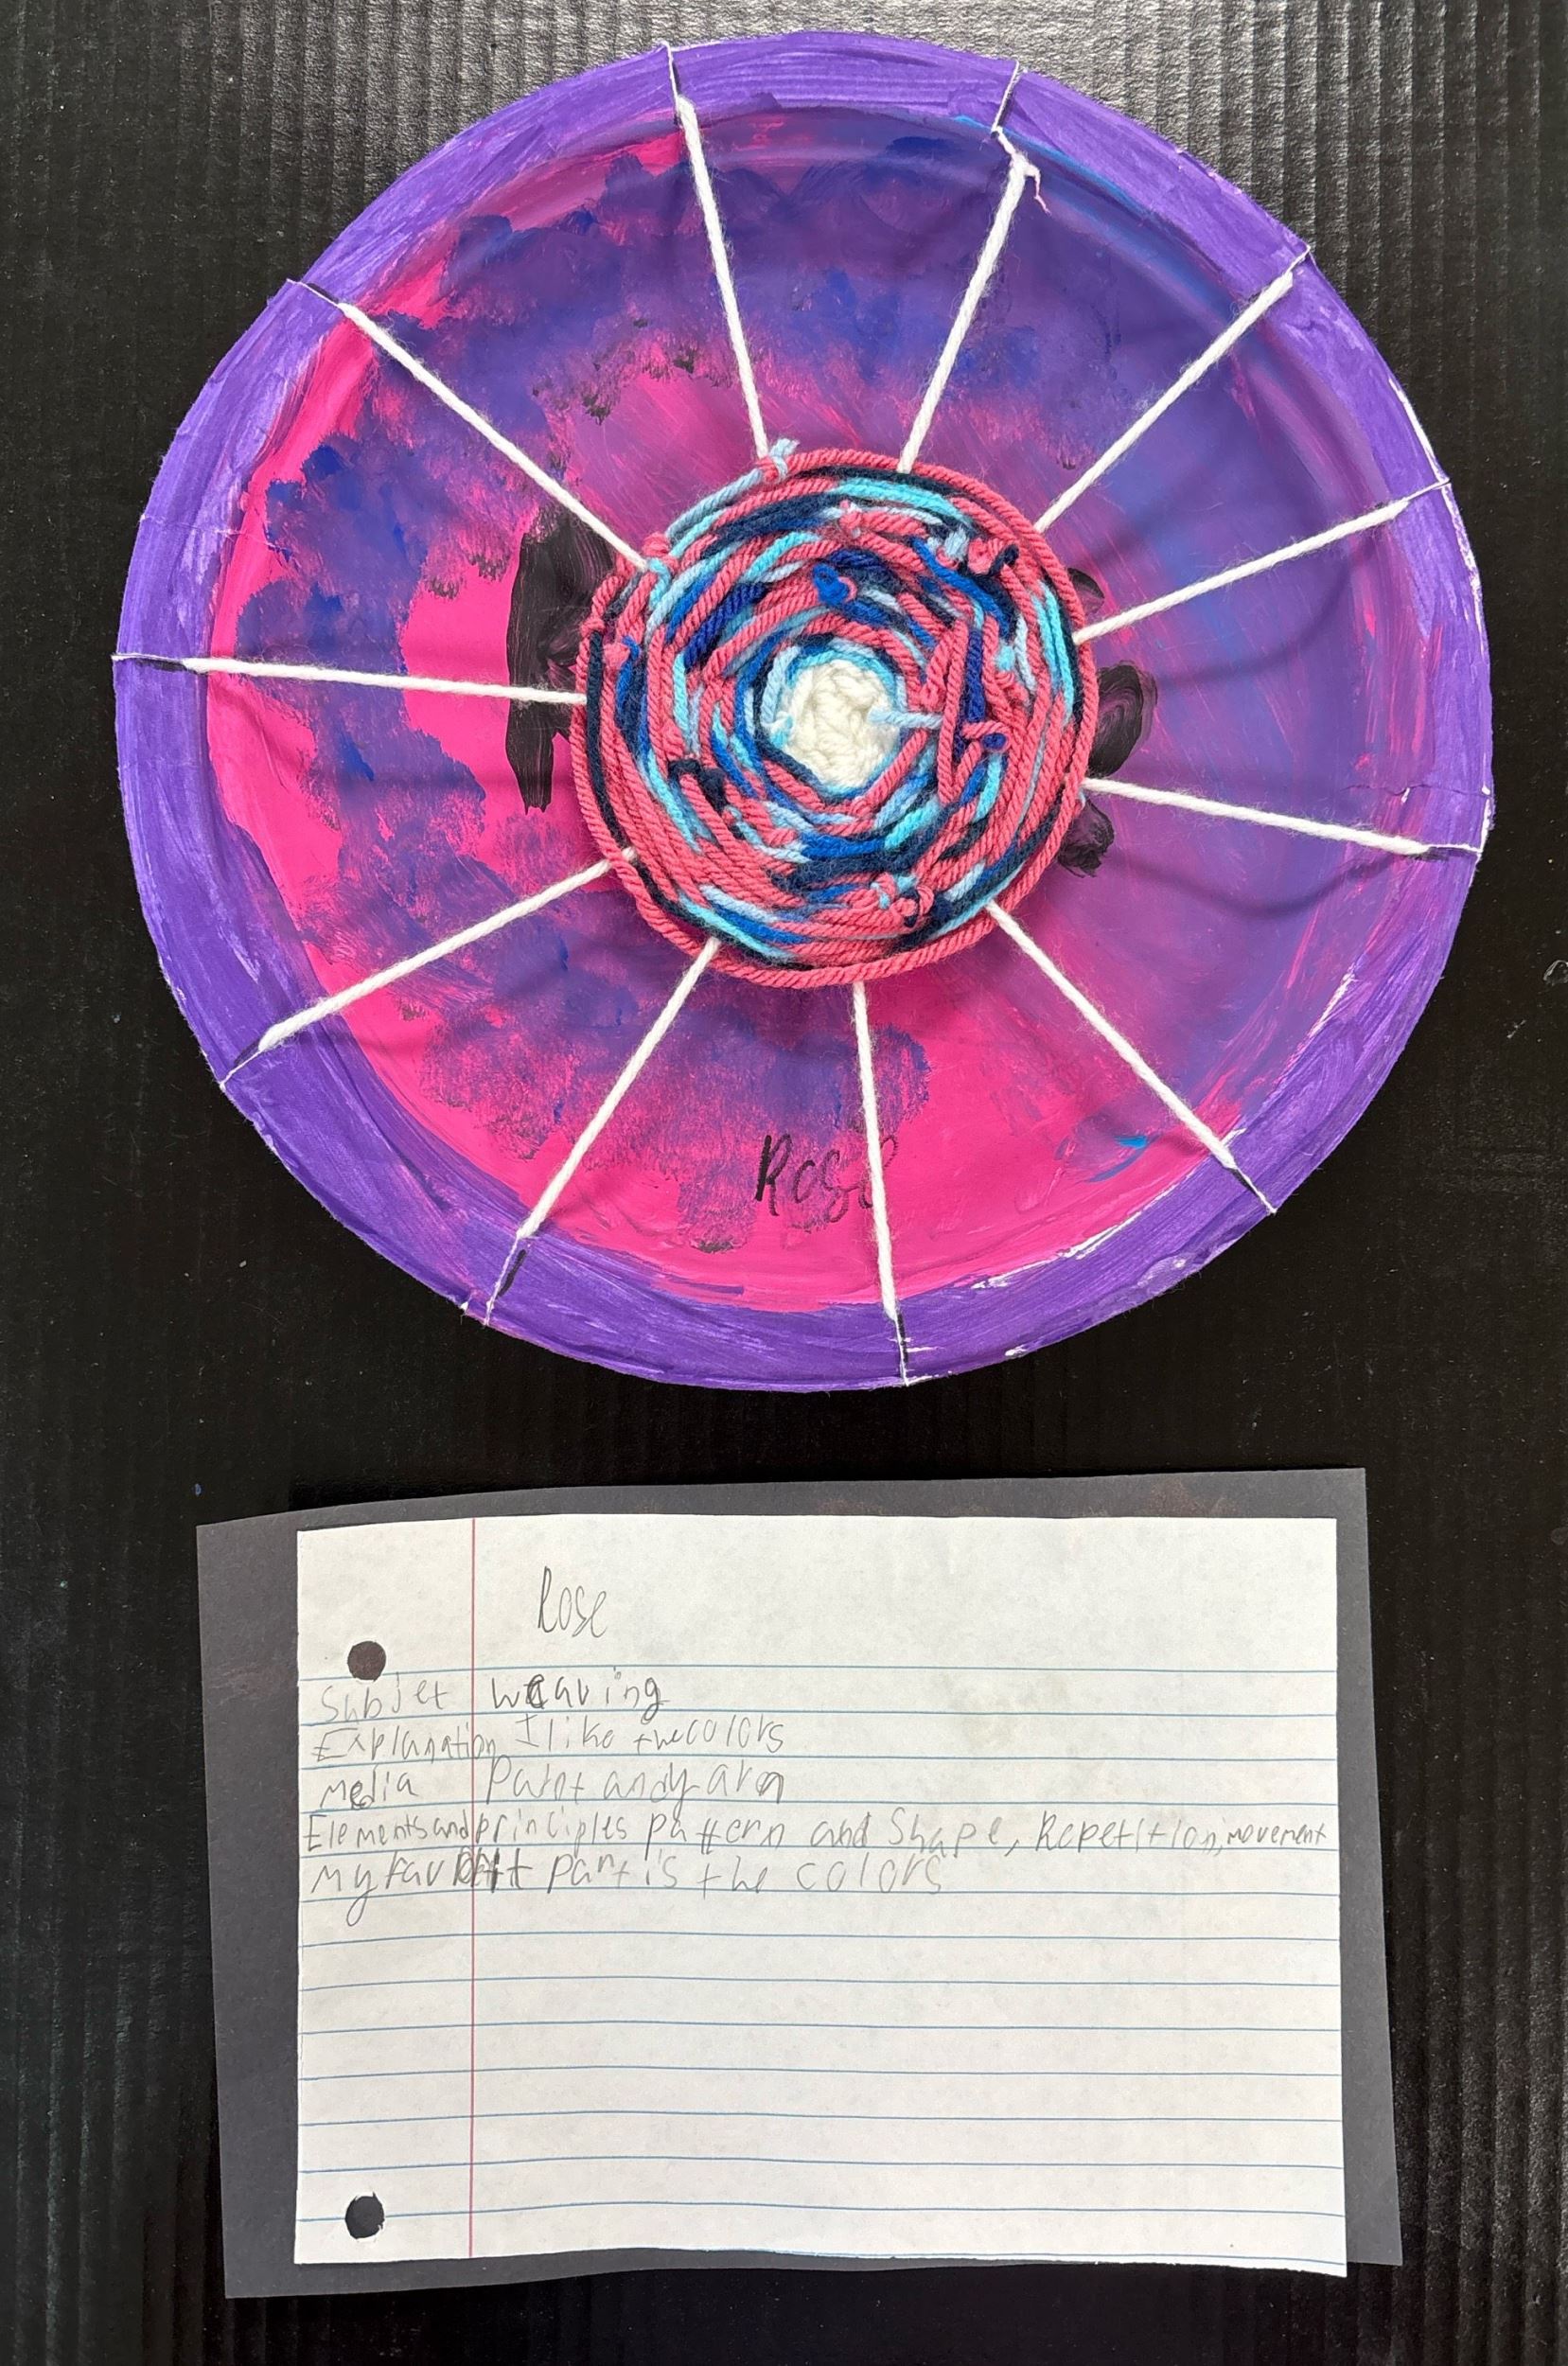 Rose
Rose
Subjet weaving
Explanation I like the colors
Media Paint and yarn
Elements and principles pattern and Shape, Repetition, movement
my favorit part is the colors